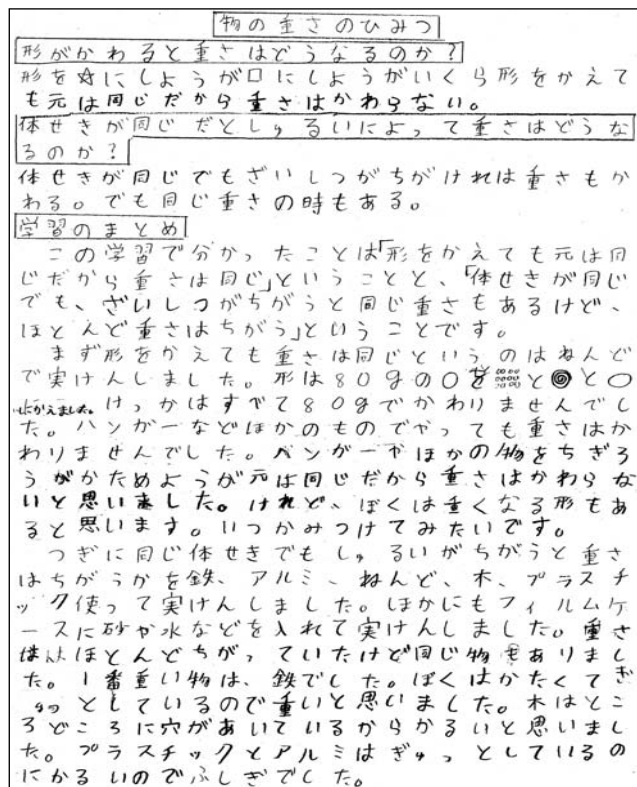 物の重さのひみつ
形がかわると重さはどうなるのか?
形を☆にしようが口にしようがいくら形をかえて
も元は同じだから重さはかわらない。
体せきが同じだとしゅるいによって重さはどうな
るのか?
体せきが同じでもざいしつがちがければ重さもか
わる。でも同じ重さの時もある。
学習のまとめ
この学習で分かったことは「形をかえても元は同
じだから重さは同じ」ということと、「体せきが同じ
でも、ざいしつがちがうと同じ重さもあるけど、
ほとんど重さはちがう」ということです。
まず形をかえても重さは同じというのはねんど
で実けんしました。形は80gの○を と と○
にかえました。けっかはすべて80gでかわりませんでし
た。ハンガーなどほかのものでやっても重さはか
わりませんでした。ハンガーやほかの物をちぎろ
うがかためようが元は同じだから重さはかわらな
いと思いました。けれど、ぼくは重くなる形もあ
ると思います。いつかみつけてみたいです。
つぎに同じ体せきでもしゅるいがちがうと重さ
はちがうかを鉄、アルミ、ねんど、木、プラスチ
ック使って実けんしました。ほかにもフィルムケ
ースに砂や水などを入れて実けんしました。重さ
はほとんどちがっていたけど同じ物もありまし
た。1番重い物は、鉄でした。ぼくはかたくてぎ
ゅっとしているので重いと思いました。木はとこ
ろどころに穴があいているからかるいと思いまし
た。プラスチックとアルミはぎゅっとしているの
にかるいのでふしぎでした。